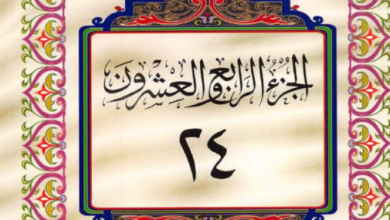 الجزء الرابع والعشرون
٢٤